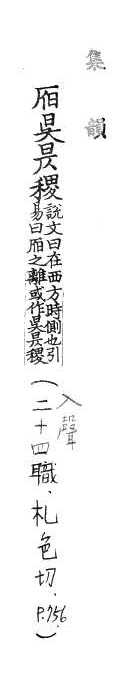 集韻
㫼昊昃稷
說文曰在西方時側也引
易曰㫼之離或作昊昃稷
(入聲
二十四職.札色切.P.756.)